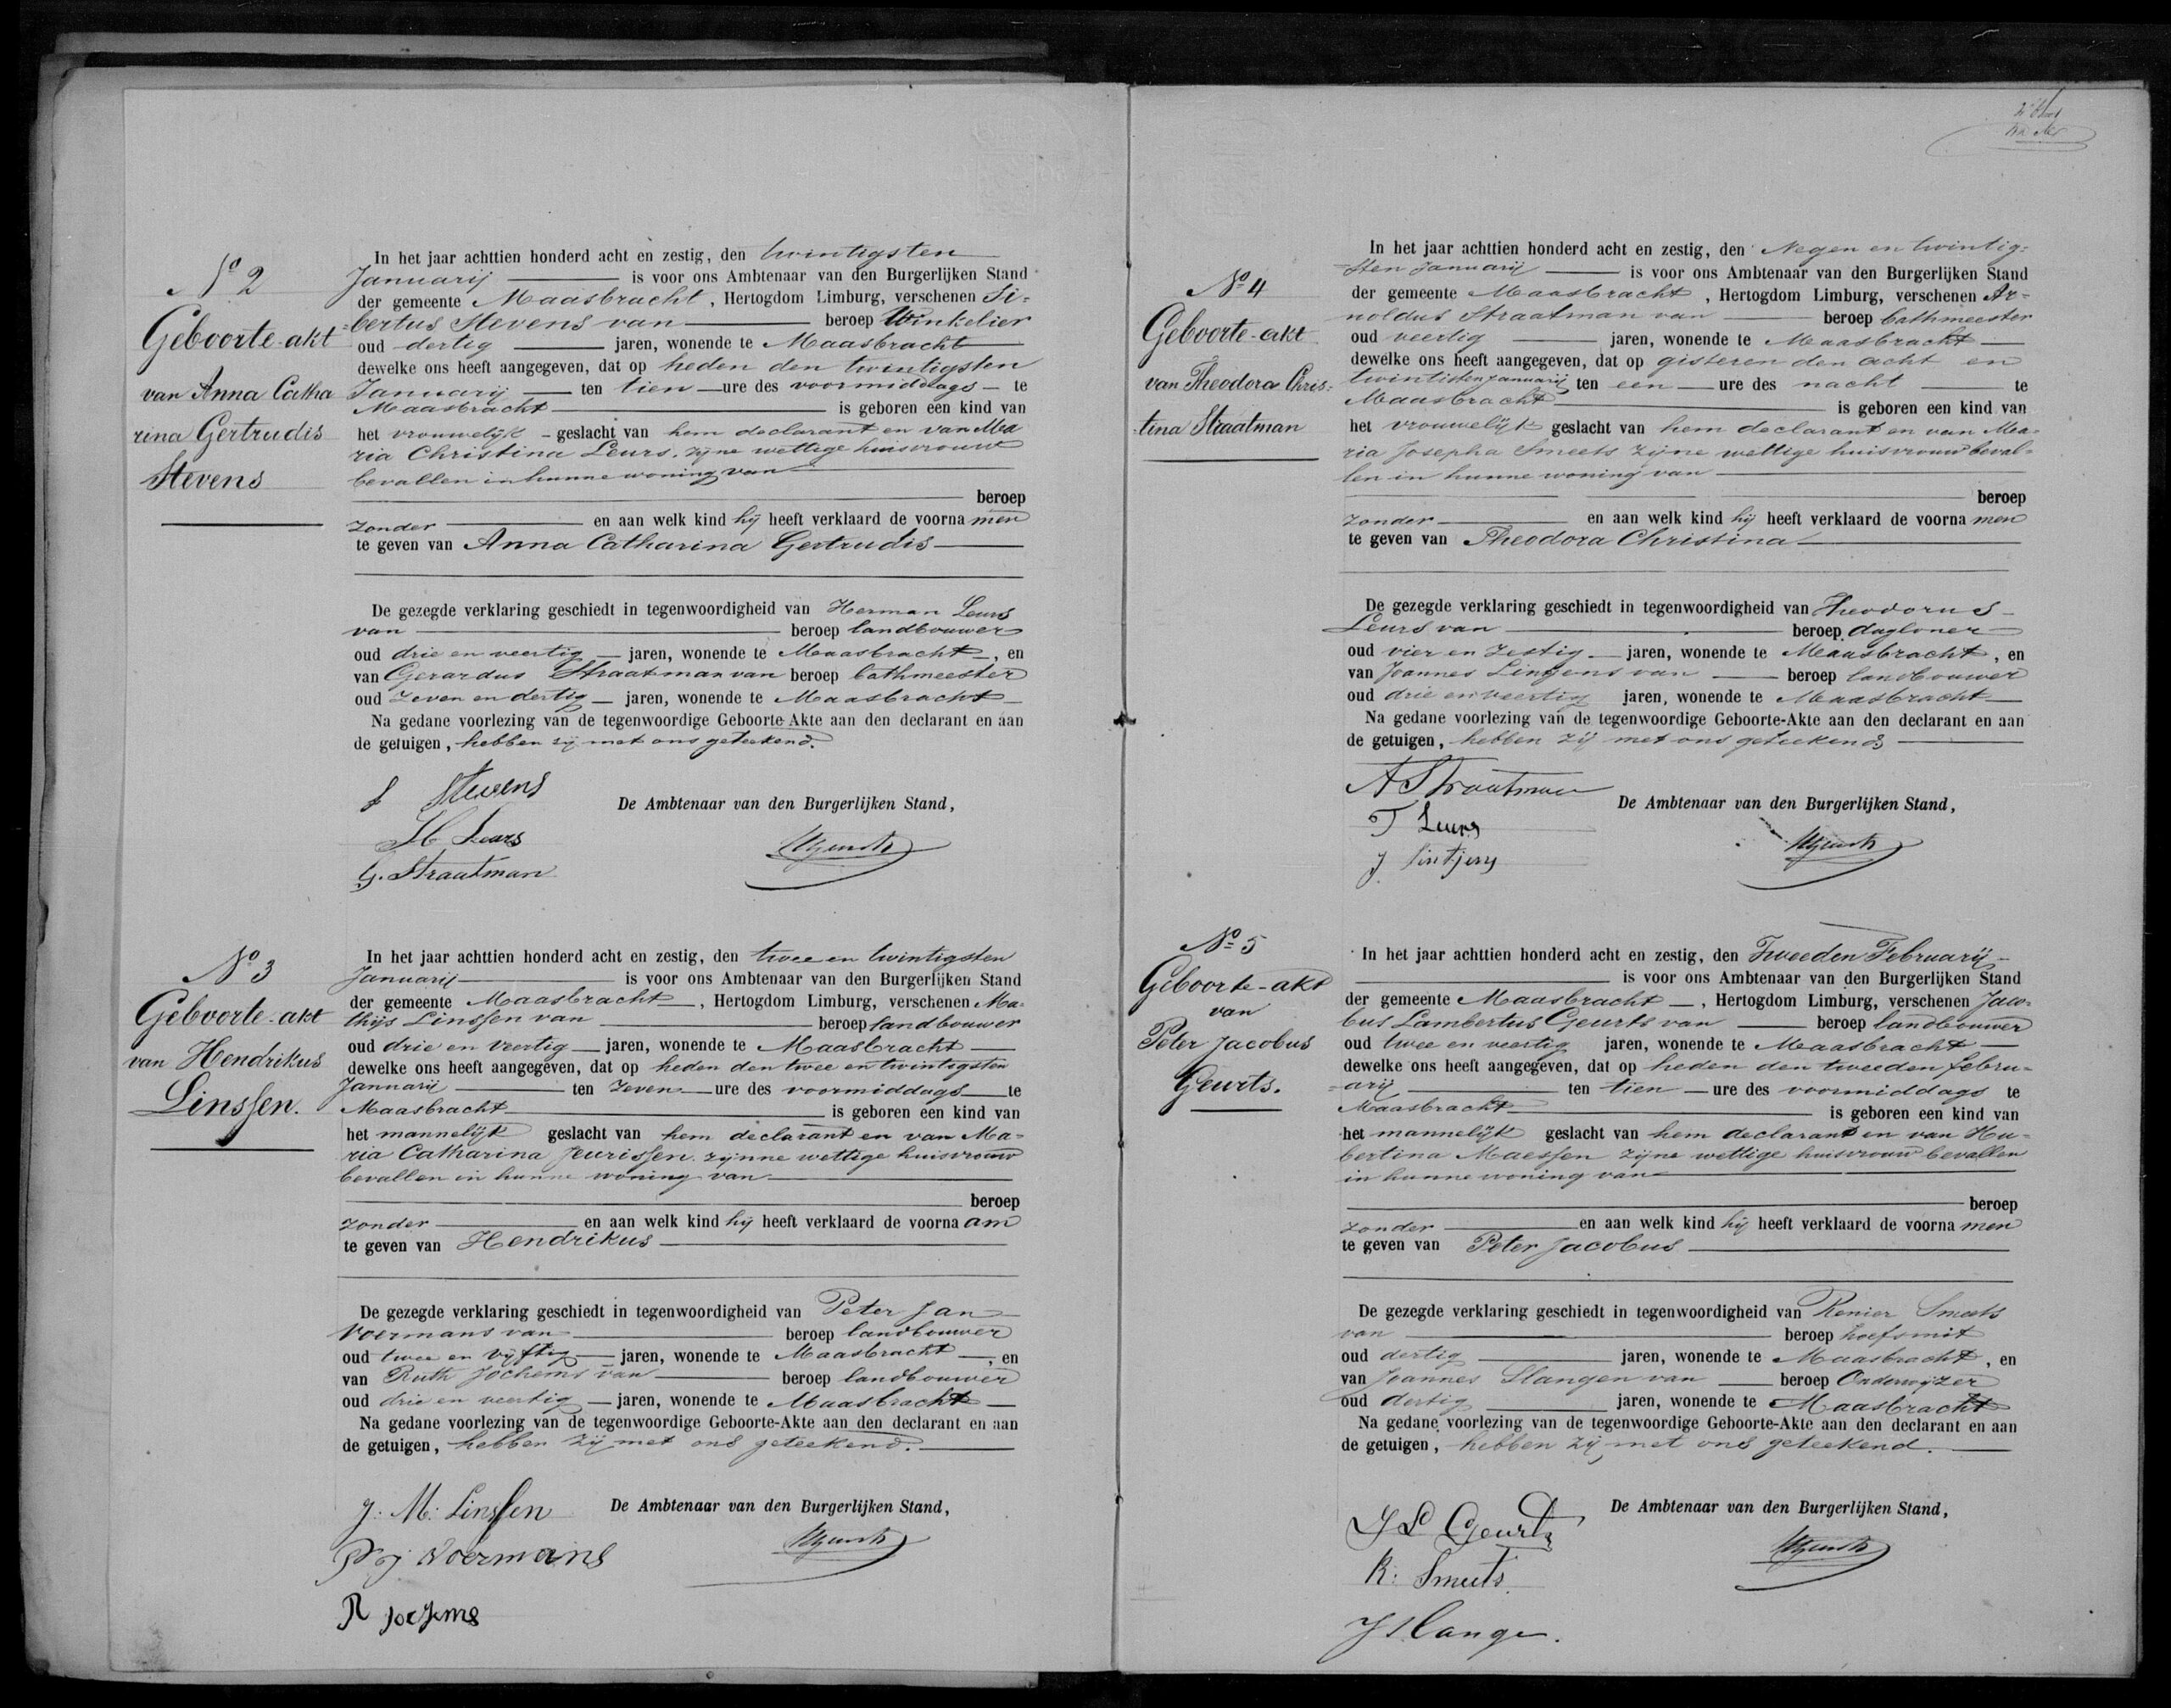 N° 2
Geboorte-akt
van Anna Catha
rina Gertrudis
Stevens
In het jaar achttien honderd acht en zestig, den twintigsten
Januarij is voor ons Ambtenaar van den Burgerlijken Stand
der gemeente Maasbracht, Hertogdom Limburg, verschenen Si=
=bertus Stevens van beroep Winkelier
oud dertig jaren, wonende te Maasbracht
dewelke ons heeft aangegeven, dat op heden den twintigsten
Januarij ten tien ure des voormiddags te
Maasbracht is geboren een kind van
het vrouwelijk geslacht van hem declarant en van Ma
ria Christina Leurs. zijne wettige huisvrouw
bevallen in hunne woning van
beroep
zonder en aan welk kind hij heeft verklaard de voorna men
te geven van Anna Catharina Gertrudis
De gezegde verklaring geschiedt in tegenwoordigheid van Herman Leurs
van beroep landbouwer
oud drie en veertig jaren, wonende te Maasbracht, en
van Gerardus Straatman van beroep bathmeester
oud zeven en dertig jaren, wonende te Maasbracht
Na gedane voorlezing van de tegenwoordige Geboorte-Akte aan den declarant en aan
de getuigen, hebben zij met ons geteekend.
S Stevens
De Ambtenaar van den Burgerlijken Stand,
H Leurs
G. Straatman
N° 3
Geboorte-akt
van Hendrikus
Linssen.
In het jaar achttien honderd acht en zestig, den twee en twintigsten
Januarij is voor ons Ambtenaar van den Burgerlijken Stand
der gemeente Maasbracht, Hertogdom Limburg, verschenen Ma=
thijs Linssen van beroep landbouwer
oud drie en veertig jaren, wonende te Maasbracht
dewelke ons heeft aangegeven, dat op heden den twee en twintigsten
Januarij ten zeven ure des voormiddags te
Maasbracht is geboren een kind van
het mannelijk geslacht van hem declarant en van Ma=
ria Catharina Jeurissen. zijnne wettige huisvrouw
bevallen in hunne woning van
beroep
zonder en aan welk kind hij heeft verklaard de voorna am
te geven van Hendrikus
De gezegde verklaring geschiedt in tegenwoordigheid van Peter Jan
Voermans van beroep landbouwer
oud twee en vijftig jaren, wonende te Maasbracht, en
van Ruth Jochems van beroep landbouwer
oud drie en veertig jaren, wonende te Maasbracht
Na gedane voorlezing van de tegenwoordige Geboorte-Akte aan den declarant en aan
de getuigen, hebben zij met ons geteekend.
J: M: Linssen
De Ambtenaar van den Burgerlijken Stand,
P J Voermans
R Jochems
N° 4
Geboorte-akt
van Theodora Chris=
tina Straatman
In het jaar achttien honderd acht en zestig, den Negen en twintig=
=sten Januarij is voor ons Ambtenaar van den Burgerlijken Stand
der gemeente Maasbracht, Hertogdom Limburg, verschenen Ar=
noldus Straatman van beroep bathmeester
oud veertig jaren, wonende te Maasbracht
dewelke ons heeft aangegeven, dat op gisteren den acht en
twintisten Januarij ten een ure des nacht te
Maasbracht is geboren een kind van
het vrouwelijk geslacht van hem declarant en van Ma=
ria Josepha Smeets zijne wettige huisvrouw beval=
len in hunne woning van
beroep
zonder en aan welk kind hij heeft verklaard de voorna men
te geven van Theodora Christina
De gezegde verklaring geschiedt in tegenwoordigheid van Theodorus
Leurs van beroep dagloner
oud vier en zestig jaren, wonende te Maasbracht, en
van Joannes Lingens van beroep landbouwer
oud drie en veertig jaren, wonende te Maasbracht
Na gedane voorlezing van de tegenwoordige Geboorte-Akte aan den declarant en aan
de getuigen, hebben zij met ons geteekend
A Straatman
De Ambtenaar van den Burgerlijken Stand,
T Leurs
N° 5
Geboorte-akt
van
Peter Jacobus
Geurts.
In het jaar achttien honderd acht en zestig, den Tweeden Februarij
is voor ons Ambtenaar van den Burgerlijken Stand
der gemeente Maasbracht, Hertogdom Limburg, verschenen Jaco=
bus Lambertus Geurts van beroep landbouwer
oud twee en veertig jaren, wonende te Maasbracht
dewelke ons heeft aangegeven, dat op heden den tweeden febru=
=arij ten tien ure des voormiddags te
Maasbracht is geboren een kind van
het mannelijk geslacht van hem declarant en van Hu=
bertina Maessen zijne wettige huisvrouw bevallen
in hunne woning van
beroep
zonder en aan welk kind hij heeft verklaard de voorna men
te geven van Peter Jacobus
De gezegde verklaring geschiedt in tegenwoordigheid van Renier Smeets
van beroep hoefsmit
oud dertig jaren, wonende te Maasbracht, en
van Joannes Slangen van beroep Onderwijzer
oud dertig jaren, wonende te Maasbracht
Na gedane voorlezing van de tegenwoordige Geboorte-Akte aan den declarant en aan
de getuigen, hebben zij met ons geteekend.
J L Geurts
De Ambtenaar van den Burgerlijken Stand,
R: Smeets
J Slange.